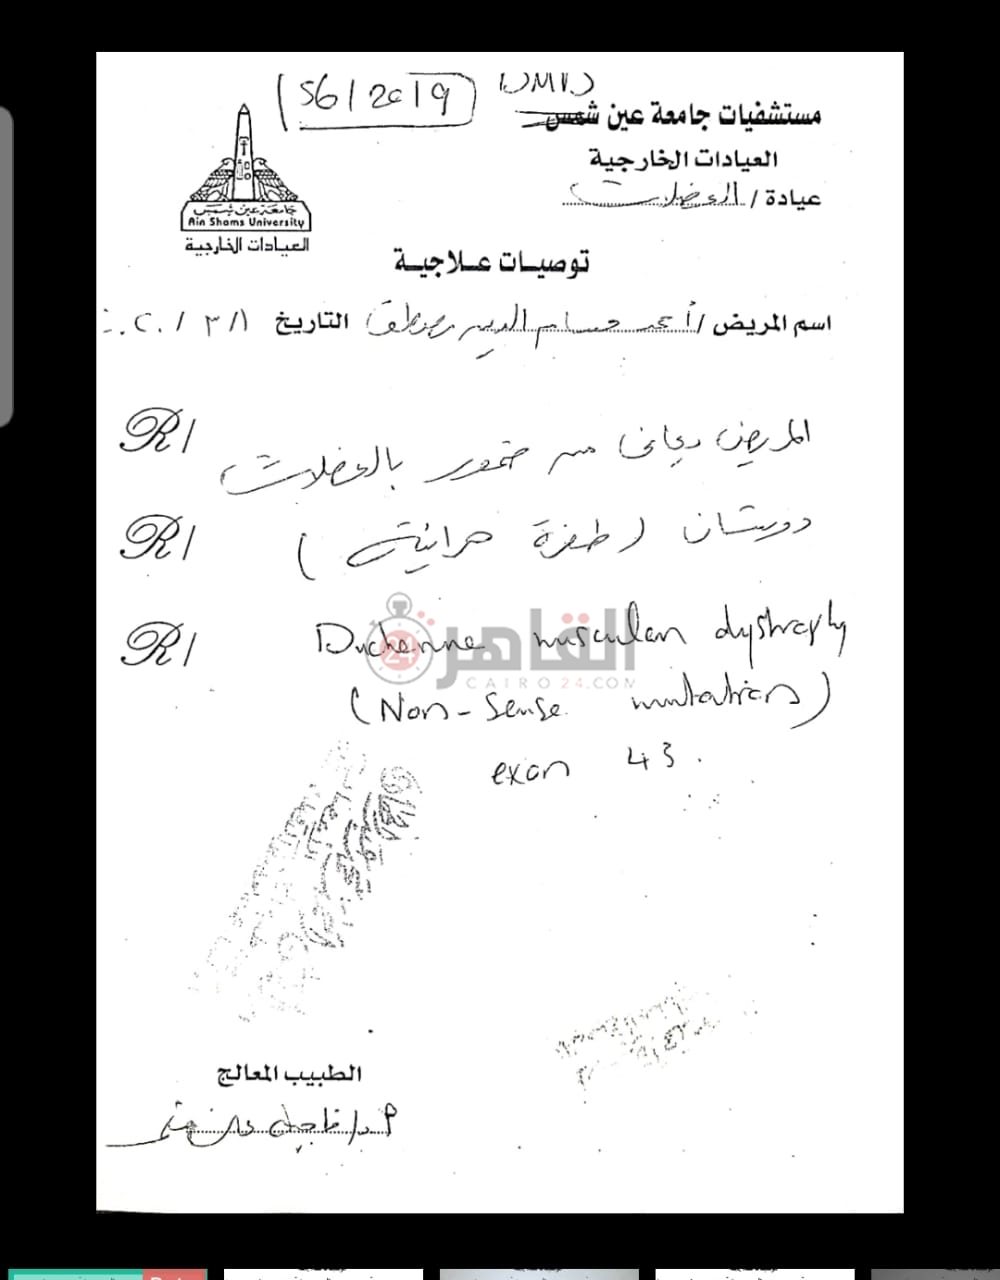 56/2019
DMD
مستشفيات جامعة عين شمس
العيادات الخارجية
عيادة / العضلات
جامعة عين شمس
Ain Shams University
العيادات الخارجية
توصيات علاجية
اسم المريض / أحمد حسام الدين مصطفى التاريخ ١ / ٣ / ٢٠
R/ المريض يعانى من ضمور بالعضلات
R/ دوشان ( طفرة هرائية )
R/ Duchenne muscular dystrophy
(Non-sense mutation)
exon 43.
القاهرة 24
CAIRO24.COM
الطبيب المعالج
أ.د/ ناجيا